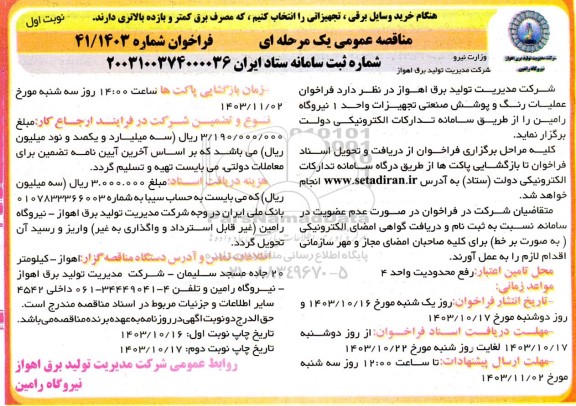 هنگام خرید وسایل برقی ، تجهیزاتی را انتخاب کنیم ، که مصرف برق کمتر و بازده بالاتری دارند.
نوبت اول
مناقصه عمومی یک مرحله ای فراخوان شماره ۴۱/۱۴۰۳
شماره ثبت سامانه ستاد ایران ۲۰۰۳۱۰۰۳۷۴۰۰۰۰۳۶
وزارت نیرو
شرکت مدیریت تولید برق اهواز
شرکت مدیریت تولید برق اهواز
نیروگاه رامین
شرکت مدیریت تولید برق اهواز در نظر دارد فراخوان
عملیات رنگ و پوشش صنعتی تجهیزات واحد ۱ نیروگاه
رامین را از طریق سامانه تدارکات الکترونیکی دولت
برگزار نماید.
کلیه مراحل برگزاری فراخوان از دریافت و تحویل اسناد
فراخوان تا بازگشایی پاکت ها از طریق درگاه سامانه تدارکات
الکترونیکی دولت (ستاد) به آدرس www.setadiran.ir انجام
خواهد شد.
متقاضیان شرکت در فراخوان در صورت عدم عضویت در
سامانه، نسبت به ثبت نام و دریافت گواهی امضای الکترونیکی
( به صورت بر خط) برای کلیه صاحبان امضای مجاز و مهر سازمانی
اقدام لازم را به عمل آورند.
محل تامین اعتبار: رفع محدودیت واحد ۴
مواعد زمانی:
-تاریخ انتشار فراخوان: روز یک شنبه مورخ ۱۴۰۳/۱۰/۱۶ و
روز دوشنبه مورخ ۱۴۰۳/۱۰/۱۷
-مهلت دریافت اسناد فراخوان: از روز دوشنبه
۱۴۰۳/۱۰/۱۷ لغایت روز شنبه مورخ ۱۴۰۳/۱۰/۲۲
-مهلت ارسال پیشنهادات: تا ساعت ۱۲:۰۰ روز سه شنبه
مورخ ۱۴۰۳/۱۱/۰۲
-زمان بازگشایی پاکت ها ساعت ۱۴:۰۰ روز سه شنبه مورخ
۱۴۰۳/۱۱/۰۲
نوع و تضمین شرکت در فرایند ارجاع کار: مبلغ
۳/۱۹۰/۰۰۰/۰۰۰ ریال (سه میلیارد و یکصد و نود میلیون
ریال) می باشد که بر اساس آخرین آیین نامه تضمین برای
معاملات دولتی، می بایست تهیه و تسلیم گردد.
هزینه دریافت اسناد: مبلغ ۳.۰۰۰.۰۰۰ ریال (سه میلیون
ریال) که می بایست به حساب سیبا به شماره ۰۱۰۷۸۳۳۳۶۶۰۰۳
بانک ملی ایران در وجه شرکت مدیریت تولید برق اهواز - نیروگاه
رامین (غیر قابل استرداد و واگذاری به غیر) واریز و رسید آن
تحویل گردد.
اطلاعات تماس و آدرس دستگاه مناقصه گزار: اهواز - کیلومتر
۲۰ جاده مسجد سلیمان - شرکت مدیریت تولید برق اهواز
- نیروگاه رامین و تلفن ۴-۳۴۴۴۹۰۴۱-۰۶۱ داخلی ۴۵۴۲
سایر اطلاعات و جزئیات مربوط در اسناد مناقصه مندرج است.
حق الدرج دو نوبت آگهی در روزنامه به عهده برنده مناقصه می باشد.
تاریخ چاپ نوبت اول: ۱۴۰۳/۱۰/۱۶
تاریخ چاپ نوبت دوم: ۱۴۰۳/۱۰/۱۷
روابط عمومی شرکت مدیریت تولید برق اهواز
نیروگاه رامین